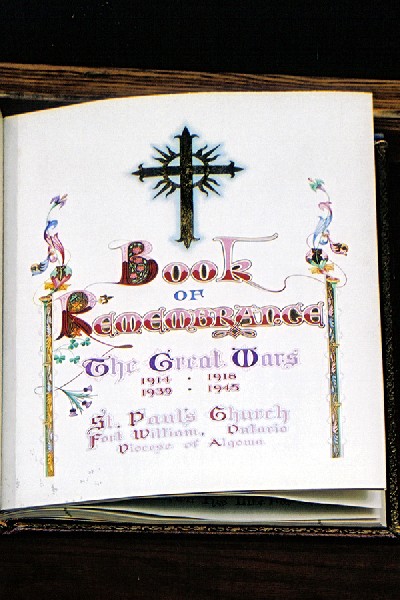 Book
OF
Remembrance
The Great Wars
1914 · 1918
1939 · 1945
St. Paul's Church
Fort William, Ontario
Diocese of Algoma